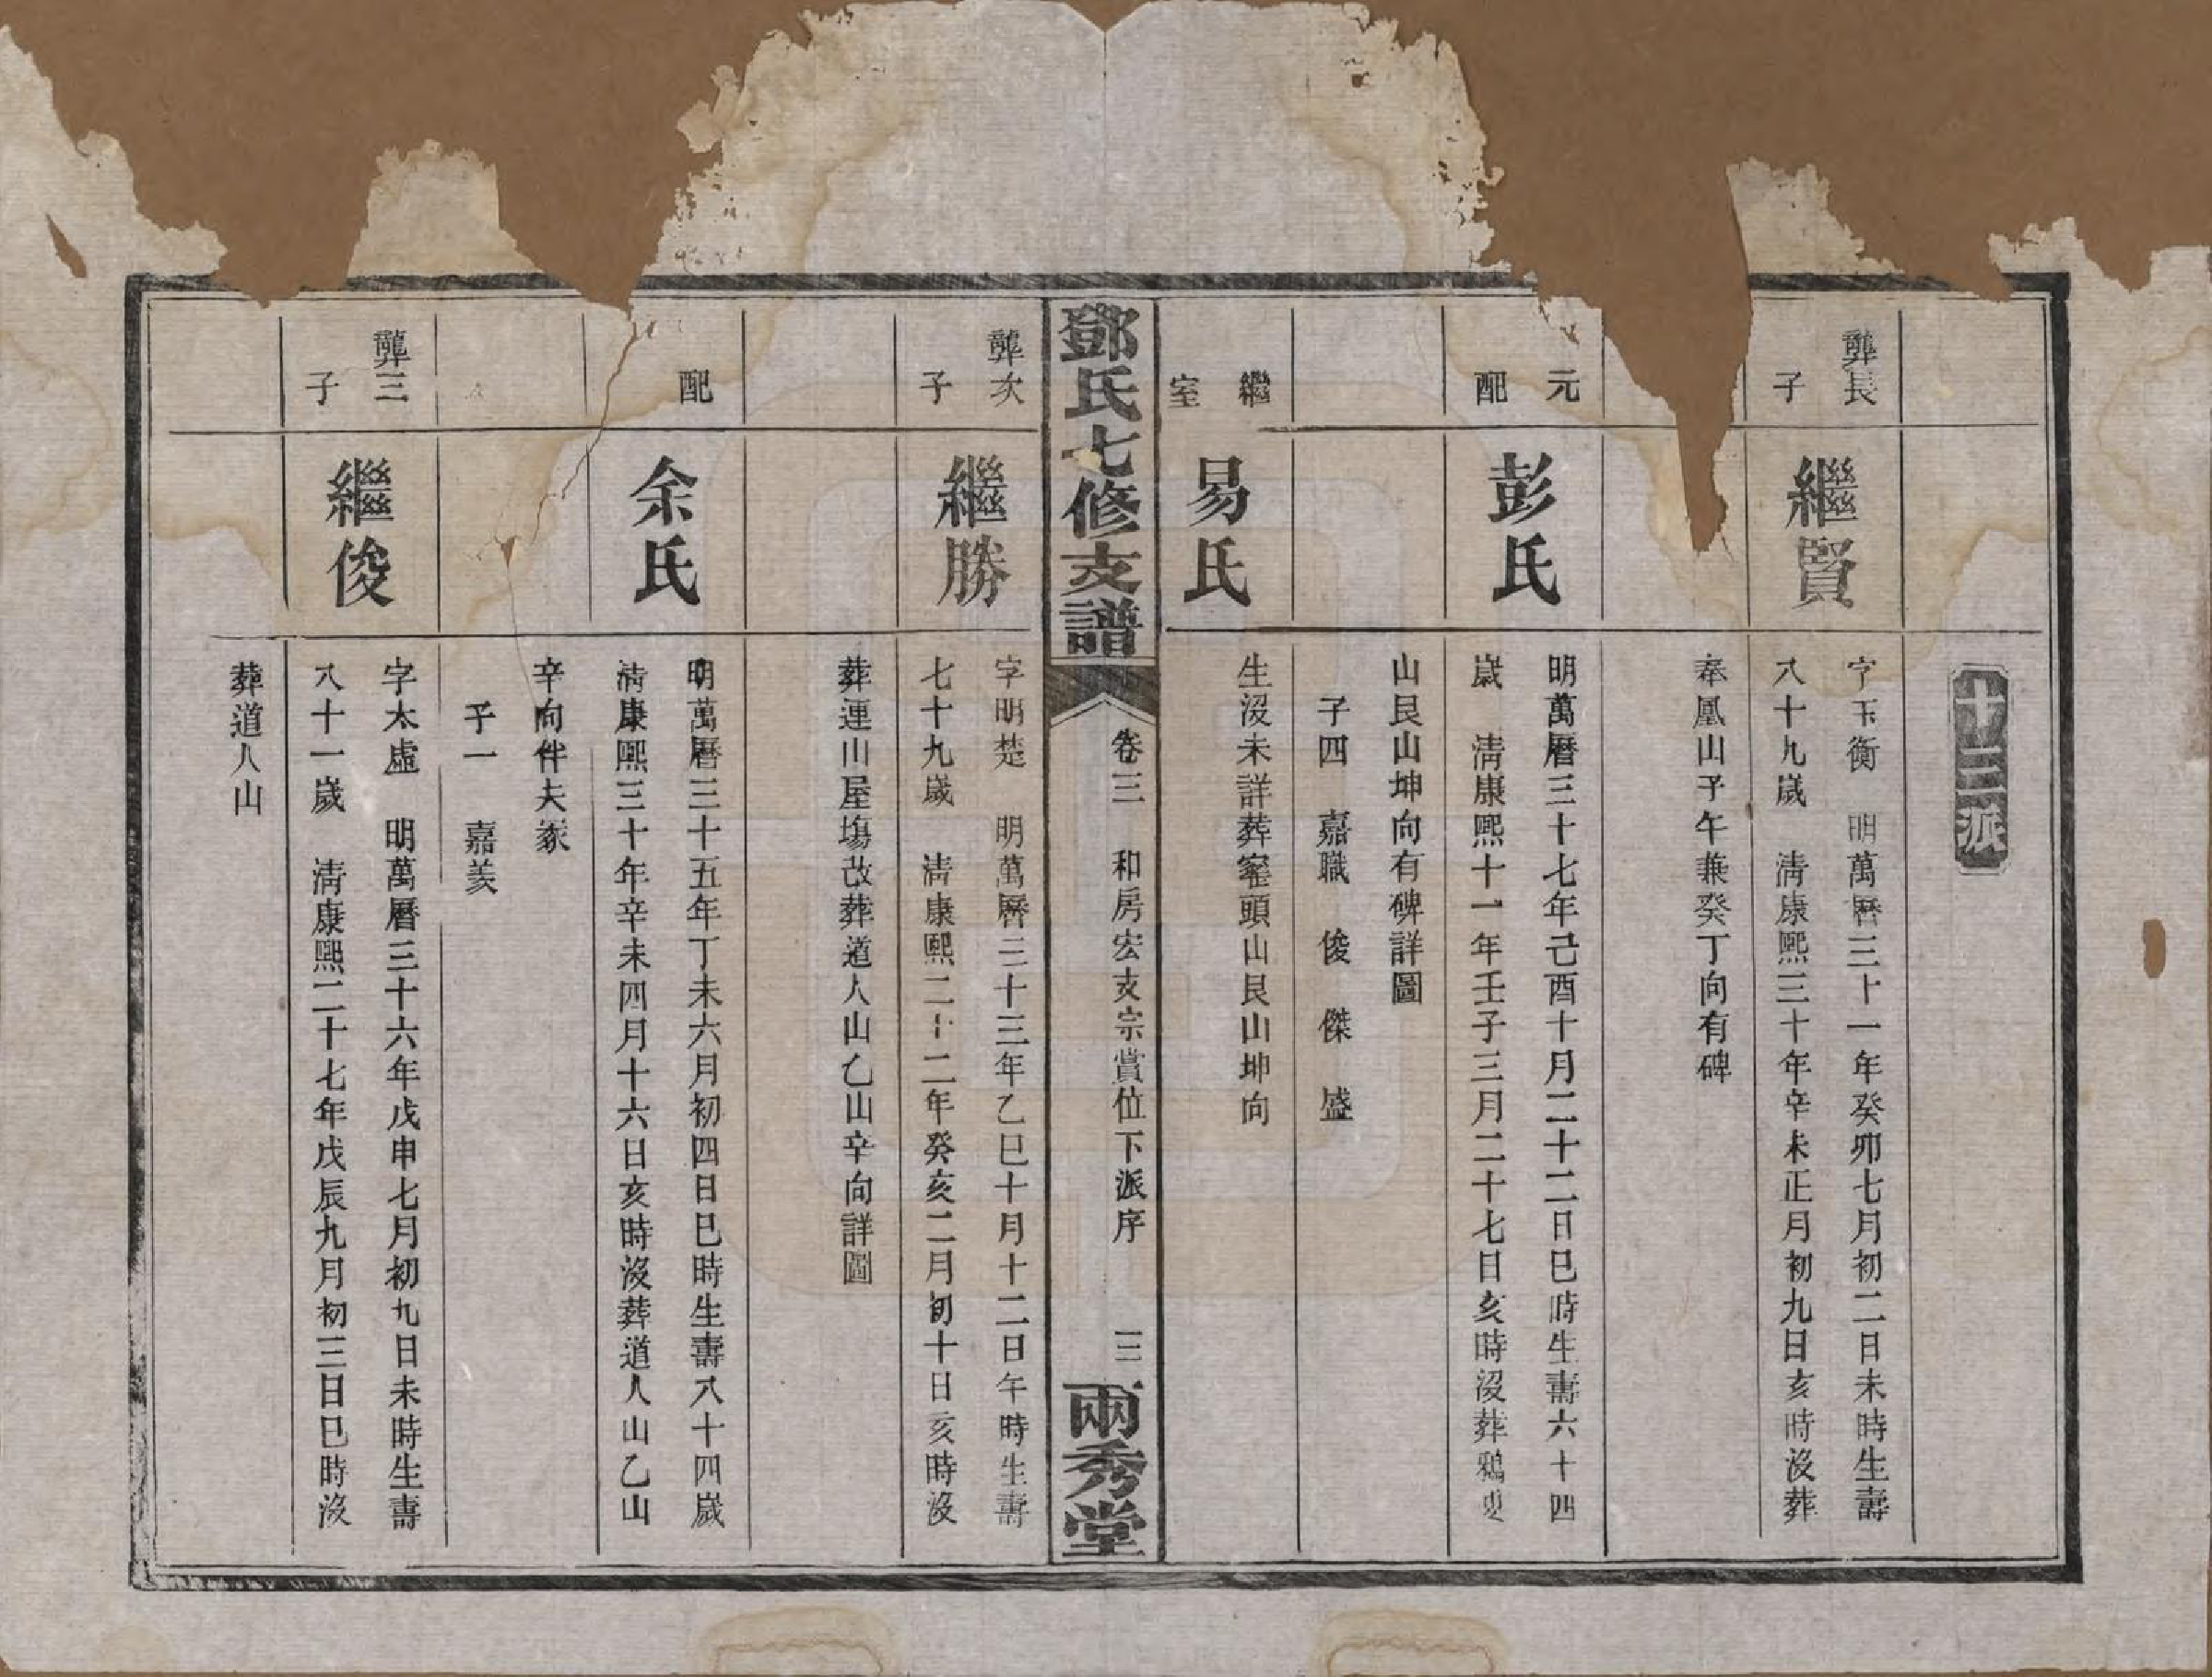 十三派
龏長
子
繼賢
字玉衡　明萬曆三十一年癸卯七月初二日未時生壽
八十九歲　清康熙三十年辛未正月初九日亥時沒葬
奉凰山子午兼癸丁向有碑
元
配
彭氏
明萬曆三十七年己酉十月二十二日巳時生壽六十四
歲　清康熙十一年壬子三月二十七日亥時沒葬鴉叟
山艮山坤向有碑詳圖
子四　嘉職　俊　傑　盛
繼
室
易氏
生沒未詳葬窰頭山艮山坤向
鄧氏七修支譜
卷三　和房宏支宗賞位下派序　三
兩秀堂
龏次
子
繼勝
字明楚　明萬曆三十三年乙巳十月十二日午時生壽
七十九歲　清康熙二十二年癸亥二月初十日亥時沒
葬連山屋塲改葬道人山乙山辛向詳圖
配
余氏
明萬曆三十五年丁未六月初四日巳時生壽八十四歲
清康熙三十年辛未四月十六日亥時沒葬道人山乙山
辛向伴夫冢
子一　嘉美
龏三
子
繼俊
字太虛　明萬曆三十六年戊申七月初九日未時生壽
八十一歲　清康熙二十七年戊辰九月初三日巳時沒
葬道人山